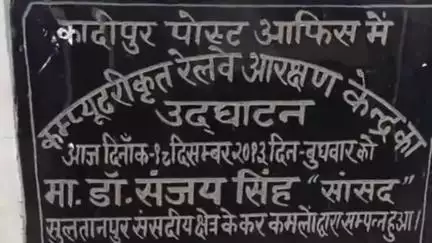 कादीपुर पोस्ट आफिस में
कम्प्यूटरीकृत रेलवे आरक्षण केन्द्र का
उद्घाटन
आज दिनाँक-१८दिसम्बर२०१३दिन-बुधवार को
मा. डॉ. संजय सिंह "सांसद"
सुलतानपुर संसदीय क्षेत्र के कर कमलोंद्वारा सम्पन्न हुआ।